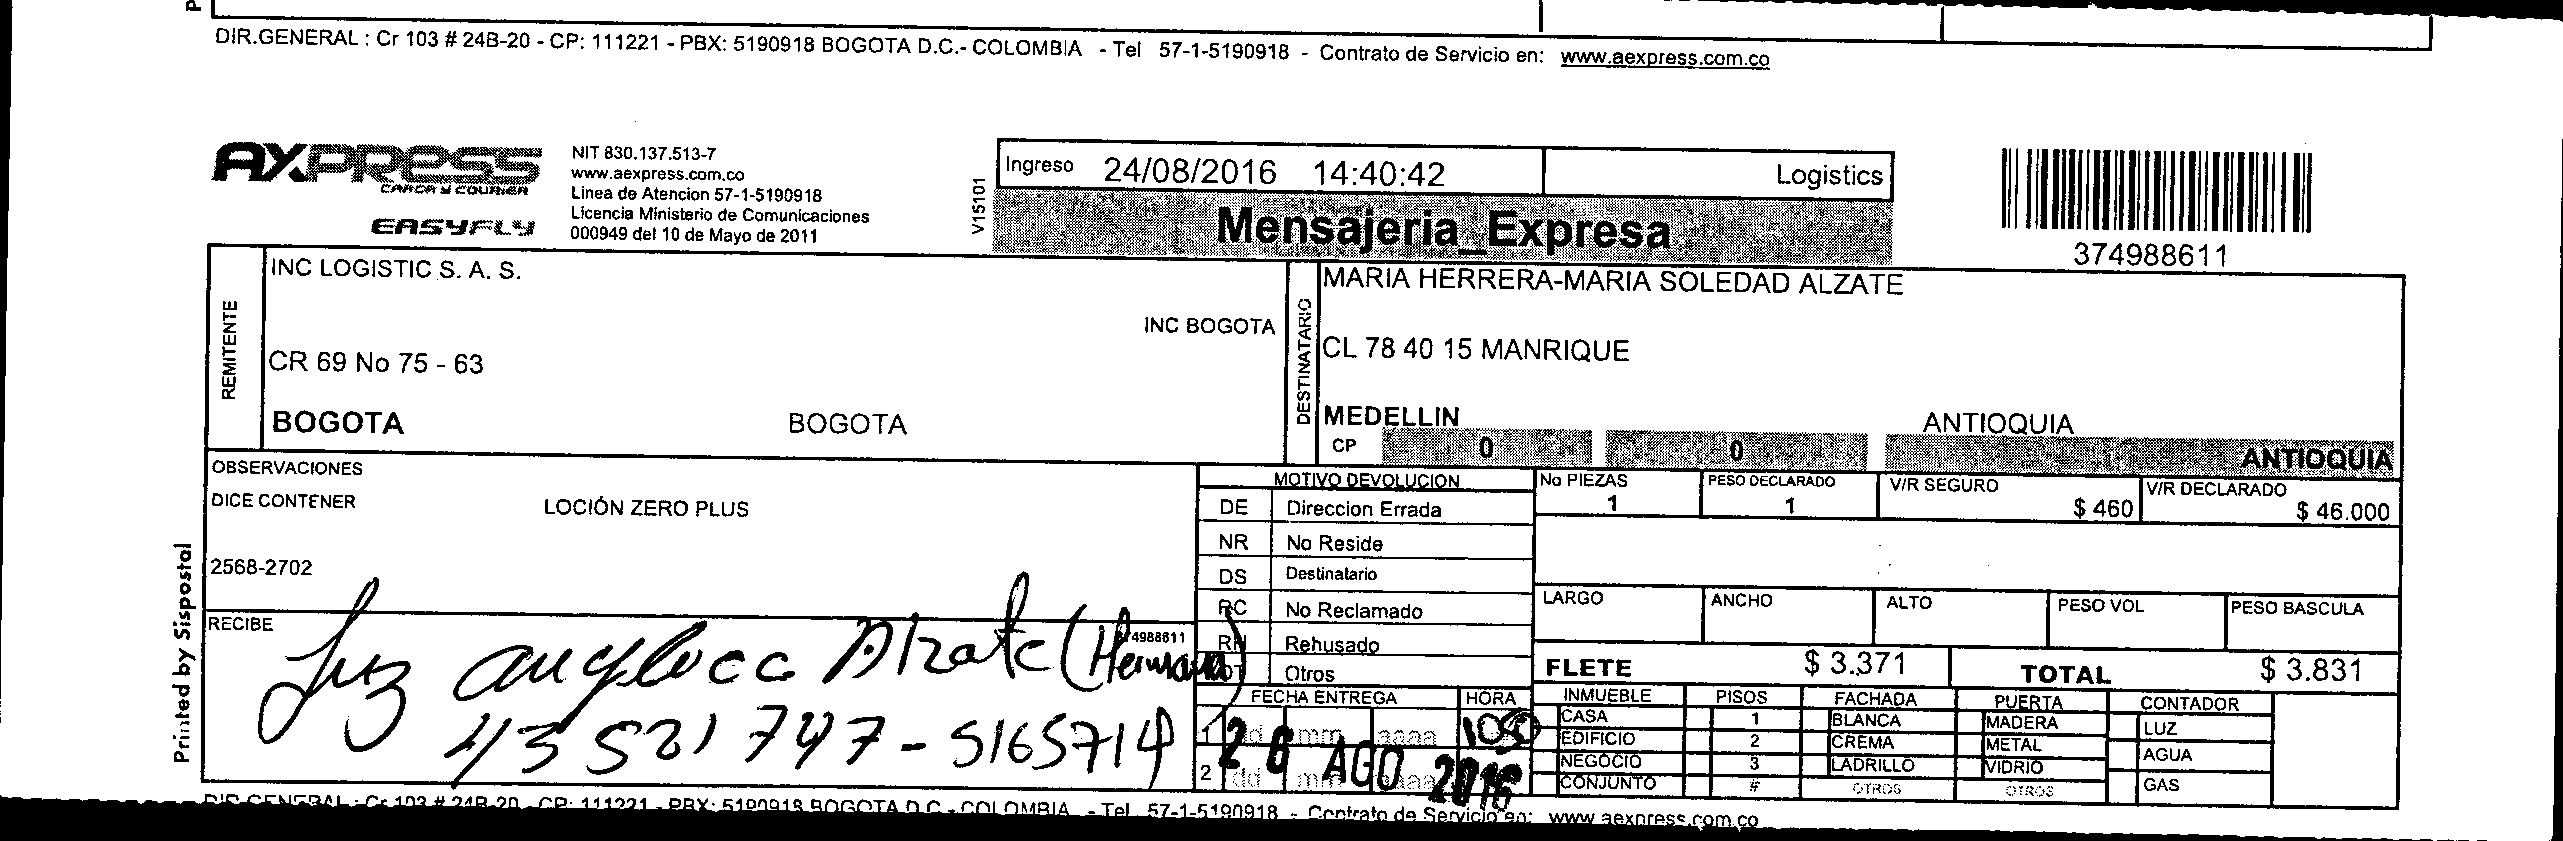 DIR.GENERAL : Cr 103 # 24B-20 - CP: 111221 - PBX: 5190918 BOGOTA D.C.- COLOMBIA - Tel 57-1-5190918 - Contrato de Servicio en: www.aexpress.com.co
AXPRESS
CARGA Y COURIER
EASYFLY
NIT 830.137.513-7
www.aexpress.com.co
Linea de Atencion 57-1-5190918
Licencia Ministerio de Comunicaciones
000949 del 10 de Mayo de 2011
V15101
Ingreso 24/08/2016 14:40:42 Logistics
Mensajeria_Expresa
374988611
REMITENTE
INC LOGISTIC S. A. S.
INC BOGOTA
CR 69 No 75 - 63
BOGOTA BOGOTA
DESTINATARIO
MARIA HERRERA-MARIA SOLEDAD ALZATE
CL 78 40 15 MANRIQUE
MEDELLIN ANTIOQUIA
CP 0 0 ANTIOQUIA
OBSERVACIONES
DICE CONTENER LOCIÓN ZERO PLUS
2568-2702
RECIBE
Luz Alzate (Hermana)
43521747 - 5165714
Printed by Sispostal
MOTIVO DEVOLUCION
DE Direccion Errada
NR No Reside
DS Destinatario
RC No Reclamado
RH Rehusado
OT Otros
FECHA ENTREGA HORA
1 dd mm aaaa
2 dd mm aaaa
26 AGO 2016
No PIEZAS PESO DECLARADO V/R SEGURO V/R DECLARADO
1 1 $ 460 $ 46.000
LARGO ANCHO ALTO PESO VOL PESO BASCULA
FLETE $ 3.371 TOTAL $ 3.831
INMUEBLE PISOS FACHADA PUERTA CONTADOR
CASA 1 BLANCA MADERA LUZ
EDIFICIO 2 CREMA METAL AGUA
NEGOCIO 3 LADRILLO VIDRIO
CONJUNTO # OTROS OTROS GAS
DIR.GENERAL : Cr 103 # 24B-20 - CP: 111221 - PBX: 5190918 BOGOTA D.C.- COLOMBIA - Tel 57-1-5190918 - Contrato de Servicio en: www.aexpress.com.co